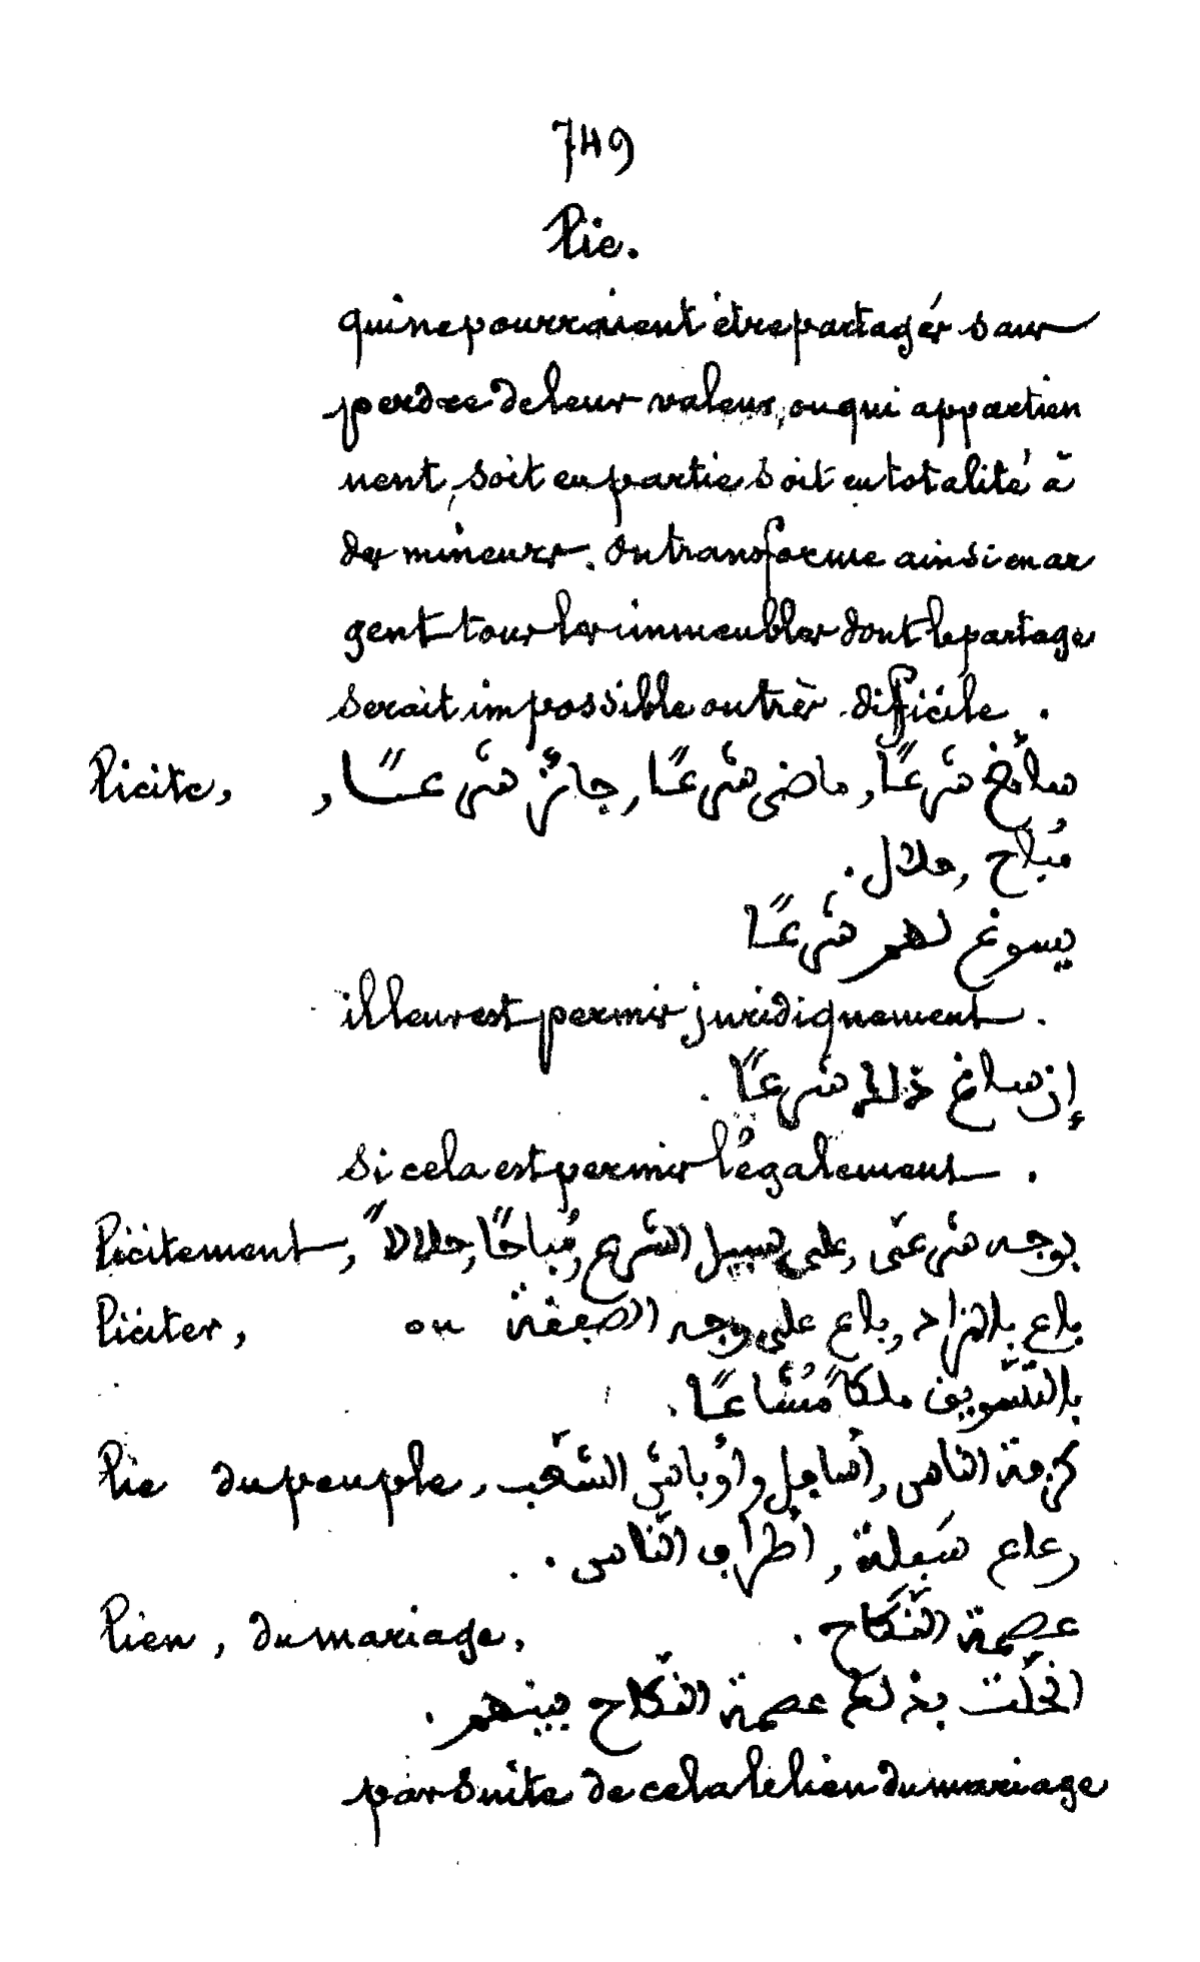 749
Lie.
qui ne pourraient être partagés sans
perdre de leur valeur, ou qui appartien
nent, soit en partie soit en totalité à
des mineurs. On transforme ainsi en ar
gent tous les immeubles dont le partage
serait impossible ou très difficile.
Licite, سائغ شرعًا, ماضى شرعًا, جائز شرعًا,
مُباح, حلال.
يسوغ لهم شرعًا
il leur est permis juridiquement.
إن ساغ ذلك شرعًا.
Si cela est permis légalement.
Licitement, بوجه شرعى, على سبيل الشرع, مُباحًا, حلالاً
Liciter, باع بالمزاد, باع على وجه الصفقة ou
بالتسويف ملكًا مُشاعًا.
Lie du peuple, الناس, أسافل وأوباش الشعب
رعاع سَفِلة, أطراف النّاس.
Lien, du mariage, عصمة النّكاح.
انحلّت بذلك عصمة النكاح بينهم.
par suite de cela le lien du mariage